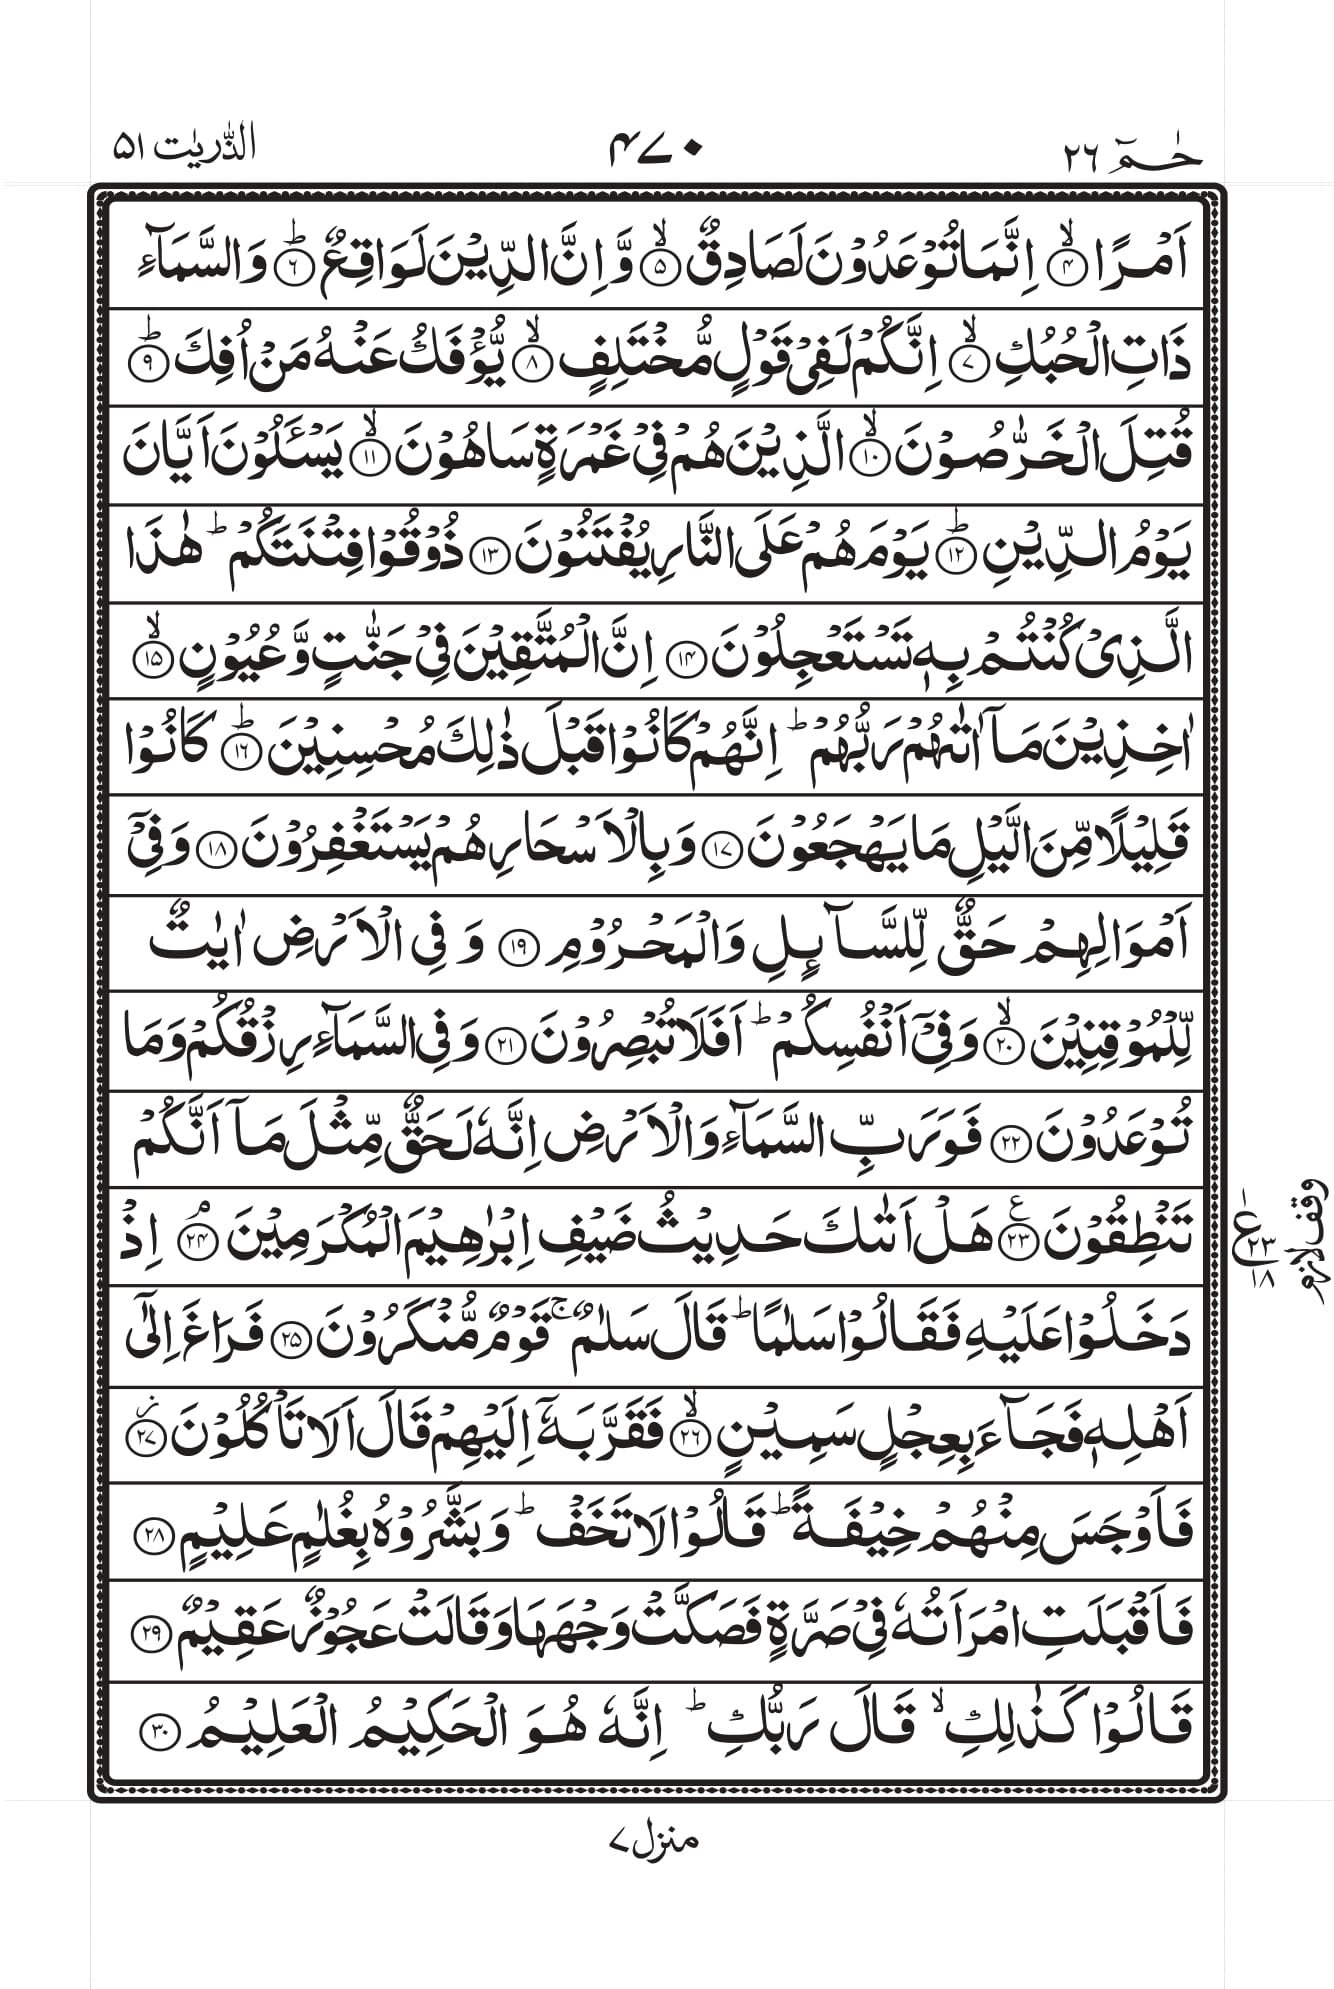 حٰمٓ ٢٦ ۴۷۰ الذّٰریٰت ۵۱
اَمْرًا ۙ﴿۴﴾ اِنَّمَا تُوْعَدُوْنَ لَصَادِقٌ ۙ﴿۵﴾ وَّ اِنَّ الدِّیْنَ لَوَاقِعٌ ؕ﴿۶﴾ وَالسَّمَآءِ
ذَاتِ الْحُبُكِ ۙ﴿۷﴾ اِنَّكُمْ لَفِیْ قَوْلٍ مُّخْتَلِفٍ ۙ﴿۸﴾ یُّؤْفَكُ عَنْهُ مَنْ اُفِكَ ؕ﴿۹﴾
قُتِلَ الْخَرّٰصُوْنَ ۙ﴿۱۰﴾ الَّذِیْنَ هُمْ فِیْ غَمْرَةٍ سَاهُوْنَ ۙ﴿۱۱﴾ یَسْـَٔلُوْنَ اَیَّانَ
یَوْمُ الدِّیْنِ ؕ﴿۱۲﴾ یَوْمَ هُمْ عَلَی النَّارِ یُفْتَنُوْنَ ﴿۱۳﴾ ذُوْقُوْا فِتْنَتَكُمْ ؕ هٰذَا
الَّذِیْ كُنْتُمْ بِهٖ تَسْتَعْجِلُوْنَ ﴿۱۴﴾ اِنَّ الْمُتَّقِیْنَ فِیْ جَنّٰتٍ وَّعُیُوْنٍ ۙ﴿۱۵﴾
اٰخِذِیْنَ مَاۤ اٰتٰىهُمْ رَبُّهُمْ ؕ اِنَّهُمْ كَانُوْا قَبْلَ ذٰلِكَ مُحْسِنِیْنَ ؕ﴿۱۶﴾ كَانُوْا
قَلِیْلًا مِّنَ الَّیْلِ مَا یَهْجَعُوْنَ ﴿۱۷﴾ وَبِالْاَسْحَارِ هُمْ یَسْتَغْفِرُوْنَ ﴿۱۸﴾ وَفِیْۤ
اَمْوَالِهِمْ حَقٌّ لِّلسَّآئِلِ وَالْمَحْرُوْمِ ﴿۱۹﴾ وَفِی الْاَرْضِ اٰیٰتٌ
لِّلْمُوْقِنِیْنَ ۙ﴿۲۰﴾ وَفِیْۤ اَنْفُسِكُمْ ؕ اَفَلَا تُبْصِرُوْنَ ﴿۲۱﴾ وَفِی السَّمَآءِ رِزْقُكُمْ وَمَا
تُوْعَدُوْنَ ﴿۲۲﴾ فَوَرَبِّ السَّمَآءِ وَالْاَرْضِ اِنَّهٗ لَحَقٌّ مِّثْلَ مَاۤ اَنَّكُمْ
تَنْطِقُوْنَ ؑ﴿۲۳﴾ هَلْ اَتٰىكَ حَدِیْثُ ضَیْفِ اِبْرٰهِیْمَ الْمُكْرَمِیْنَ ۘ﴿۲۴﴾ اِذْ
ع ۱ ۲۳ ۱۸ وقف لازم
دَخَلُوْا عَلَیْهِ فَقَالُوْا سَلٰمًا ؕ قَالَ سَلٰمٌ ۚ قَوْمٌ مُّنْكَرُوْنَ ﴿۲۵﴾ فَرَاغَ اِلٰۤی
اَهْلِهٖ فَجَآءَ بِعِجْلٍ سَمِیْنٍ ۙ﴿۲۶﴾ فَقَرَّبَهٗۤ اِلَیْهِمْ قَالَ اَلَا تَاْكُلُوْنَ ؗ﴿۲۷﴾
فَاَوْجَسَ مِنْهُمْ خِیْفَةً ؕ قَالُوْا لَا تَخَفْ ؕ وَبَشَّرُوْهُ بِغُلٰمٍ عَلِیْمٍ ﴿۲۸﴾
فَاَقْبَلَتِ امْرَاَتُهٗ فِیْ صَرَّةٍ فَصَكَّتْ وَجْهَهَا وَقَالَتْ عَجُوْزٌ عَقِیْمٌ ﴿۲۹﴾
قَالُوْا كَذٰلِكِ ۙ قَالَ رَبُّكِ ؕ اِنَّهٗ هُوَ الْحَكِیْمُ الْعَلِیْمُ ﴿۳۰﴾
منزل ۷